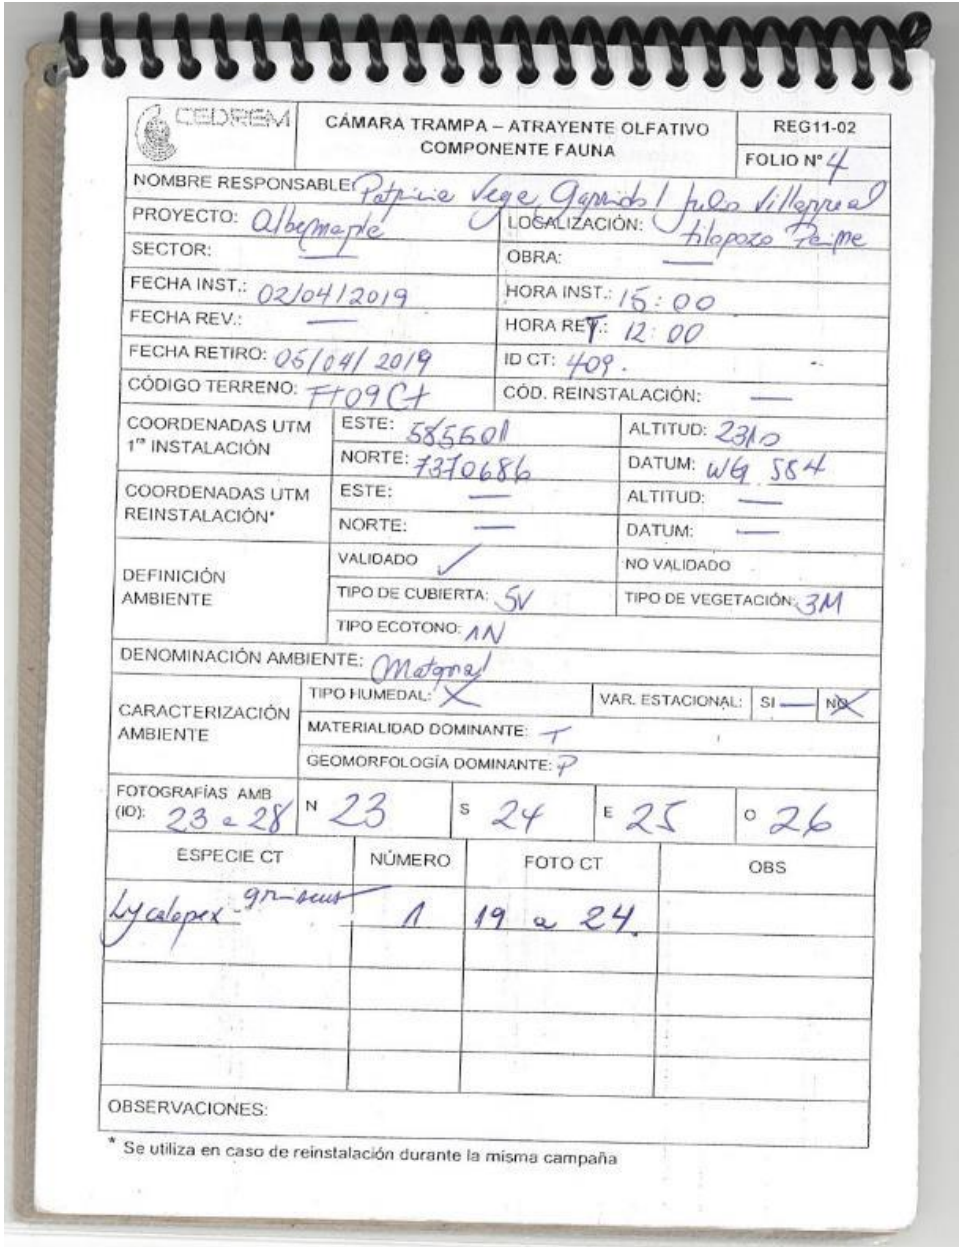 CEDREM
CÁMARA TRAMPA – ATRAYENTE OLFATIVO
COMPONENTE FAUNA
REG11-02
FOLIO N° 4
NOMBRE RESPONSABLE: Patricia Vega Garrido / Julio Villarreal
PROYECTO: Albemarle
LOCALIZACIÓN: tilopozo
SECTOR: —
OBRA: —
FECHA INST.: 02/04/2019
HORA INST.: 15:00
FECHA REV.: —
HORA RET.: 12:00
FECHA RETIRO: 05/04/2019
ID CT: 409.
CÓDIGO TERRENO: FT09Ct
CÓD. REINSTALACIÓN: —
COORDENADAS UTM
1ra INSTALACIÓN
ESTE: 585601
ALTITUD: 2310
NORTE: 7370686
DATUM: WG S84
COORDENADAS UTM
REINSTALACIÓN*
ESTE: —
ALTITUD: —
NORTE: —
DATUM: —
DEFINICIÓN
AMBIENTE
VALIDADO ✓
NO VALIDADO
TIPO DE CUBIERTA: 5V
TIPO DE VEGETACIÓN: 3M
TIPO ECOTONO: 1N
DENOMINACIÓN AMBIENTE: Matorral
CARACTERIZACIÓN
AMBIENTE
TIPO HUMEDAL: X
VAR. ESTACIONAL: SI — NO X
MATERIALIDAD DOMINANTE: T
GEOMORFOLOGÍA DOMINANTE: P
FOTOGRAFÍAS AMB
(IO): 23 a 28
N 23
S 24
E 25
O 26
ESPECIE CT
NÚMERO
FOTO CT
OBS
Lycalopex griseus
1
19 a 24.
OBSERVACIONES:
* Se utiliza en caso de reinstalación durante la misma campaña